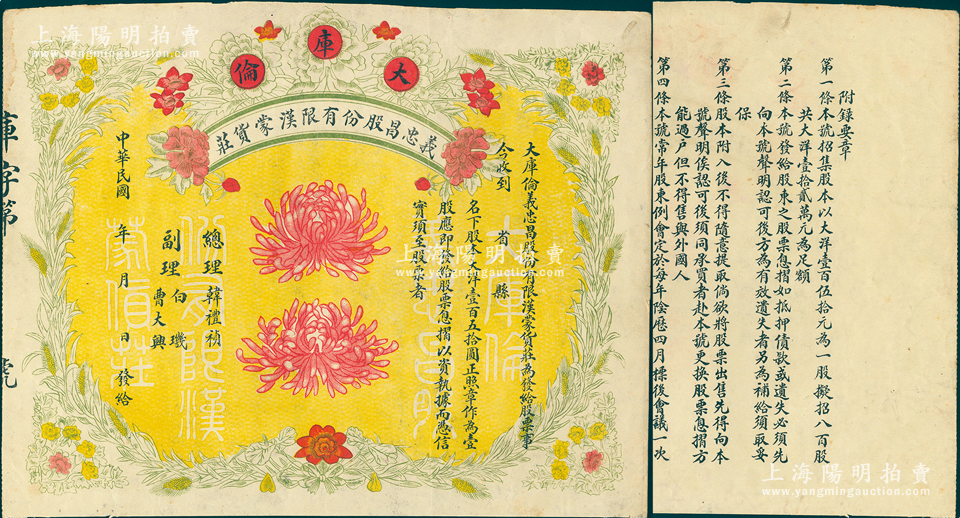 上海陽明拍賣
www.yangmingauction.com
大庫倫
義忠昌股份有限漢蒙貨莊
大庫倫義忠昌股份有限漢蒙貨莊為發給股票事
今收到
省 縣
名下股本大洋壹百五拾圓正照章作為壹
股應即發給股票息摺以資執據而憑信
實須至股票者
總理 韓禮禎
副理 白璣
曹大興
中華民國 年 月 日發給
庫字第 號
大庫倫
義忠昌股
份有限漢
蒙貨莊
附錄要章
第一條本號招集股本以大洋壹百伍拾元為一股擬招八百股
共大洋壹拾貳萬元為足額
第二條本號發給股東之股票息摺如抵押債欵或遺失必須先
向本號聲明認可後方為有效遺失者另為補給須取妥
保
第三條股本附入後不得隨意提取倘欲將股票出售先得向本
號聲明俟認可後須同承買者赴本號更換股票息摺方
能過户但不得售與外國人
第四條本號常年股東例會定於每年陰歷四月標後會議一次
上海陽明拍賣
www.yangmingauction.com